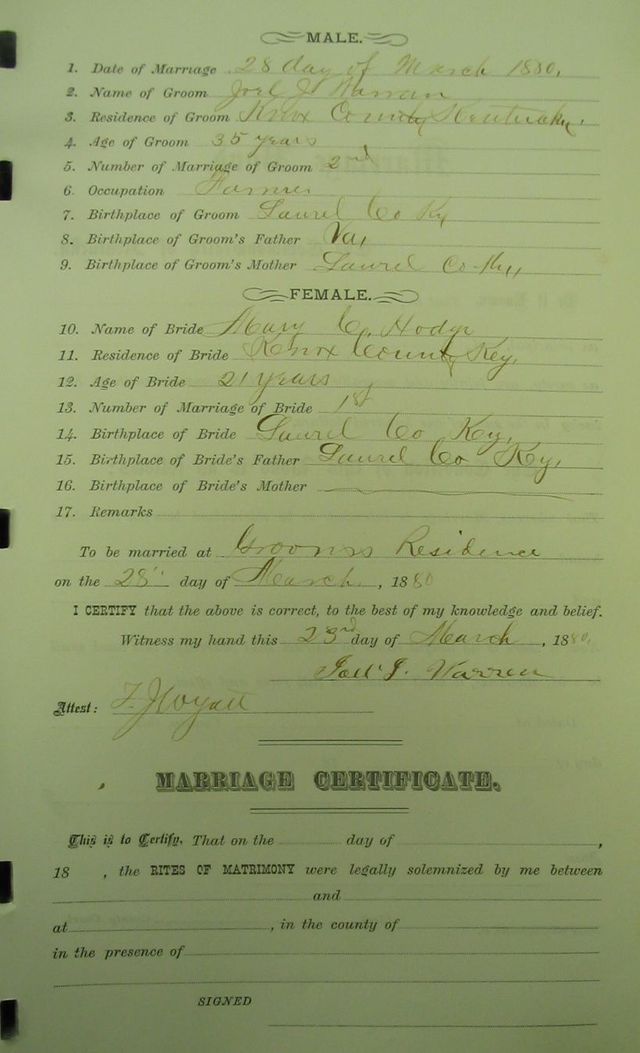 MALE.
1. Date of Marriage 28 day of March 1880,
2. Name of Groom Joel J Warran
3. Residence of Groom Knox County Kentucky.
4. Age of Groom 35 years
5. Number of Marriage of Groom 2nd
6. Occupation Farmer
7. Birthplace of Groom Laurel Co Ky
8. Birthplace of Groom's Father Va,
9. Birthplace of Groom's Mother Laurel Co Ky,
FEMALE.
10. Name of Bride Mary C. Hodge
11. Residence of Bride Knox County Key,
12. Age of Bride 21 years
13. Number of Marriage of Bride 1st
14. Birthplace of Bride Laurel Co Key,
15. Birthplace of Bride's Father Laurel Co Key,
16. Birthplace of Bride's Mother
17. Remarks
To be married at Grooms Residence
on the 28" day of March, 1880
I CERTIFY that the above is correct, to the best of my knowledge and belief.
Witness my hand this 23rd day of March, 1880,
Joel J. Warren
Attest:
MARRIAGE CERTIFICATE.
This is to Certify, That on the day of ,
18 , the RITES OF MATRIMONY were legally solemnized by me between
and
at , in the county of
in the presence of
SIGNED